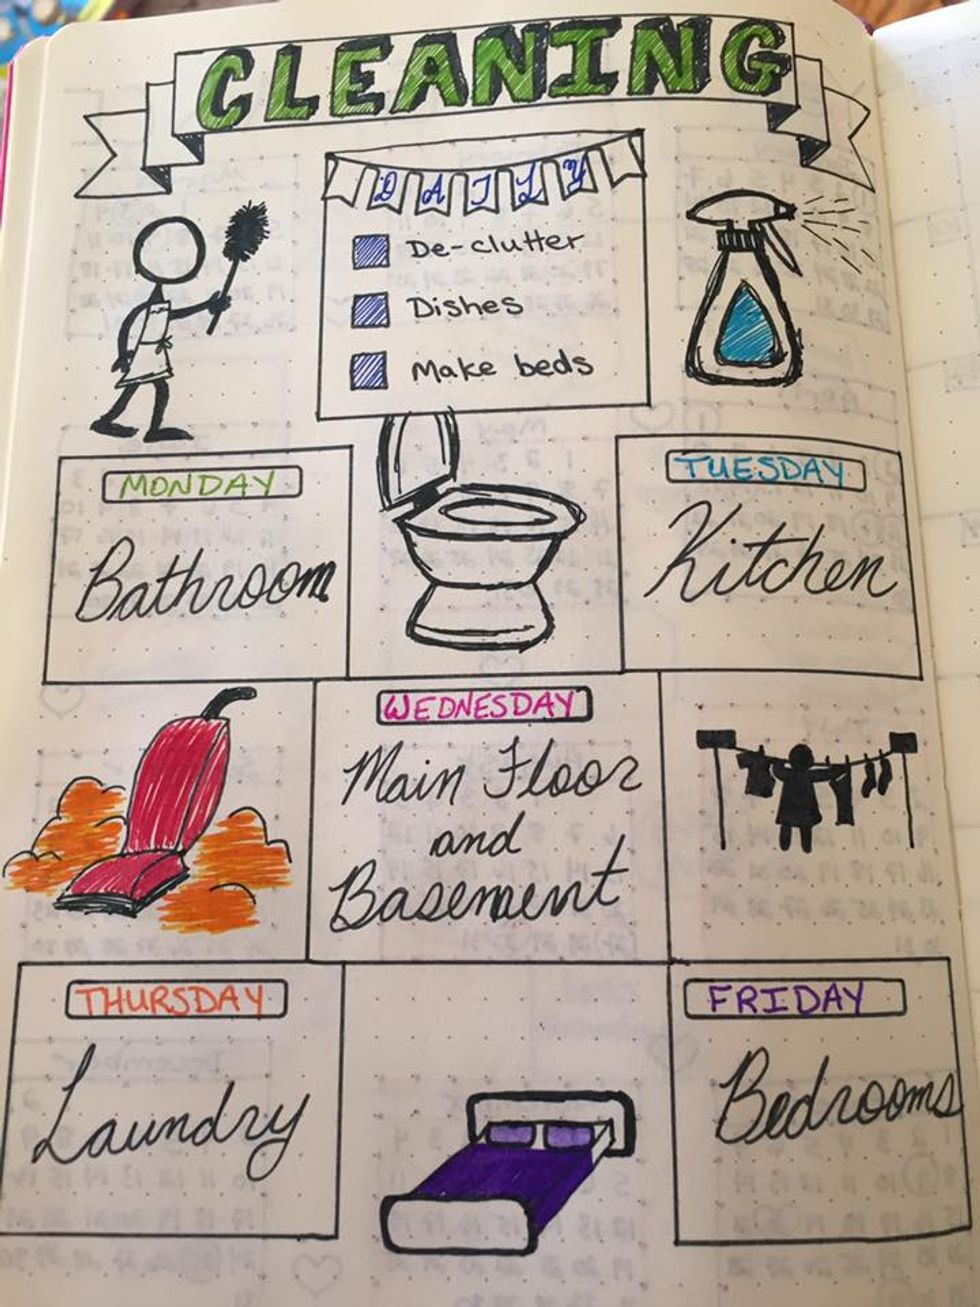 CLEANING
DAILY
De-clutter
Dishes
Make beds
MONDAY
Bathroom
TUESDAY
Kitchen
WEDNESDAY
Main Floor
and
Basement
THURSDAY
Laundry
FRIDAY
Bedrooms